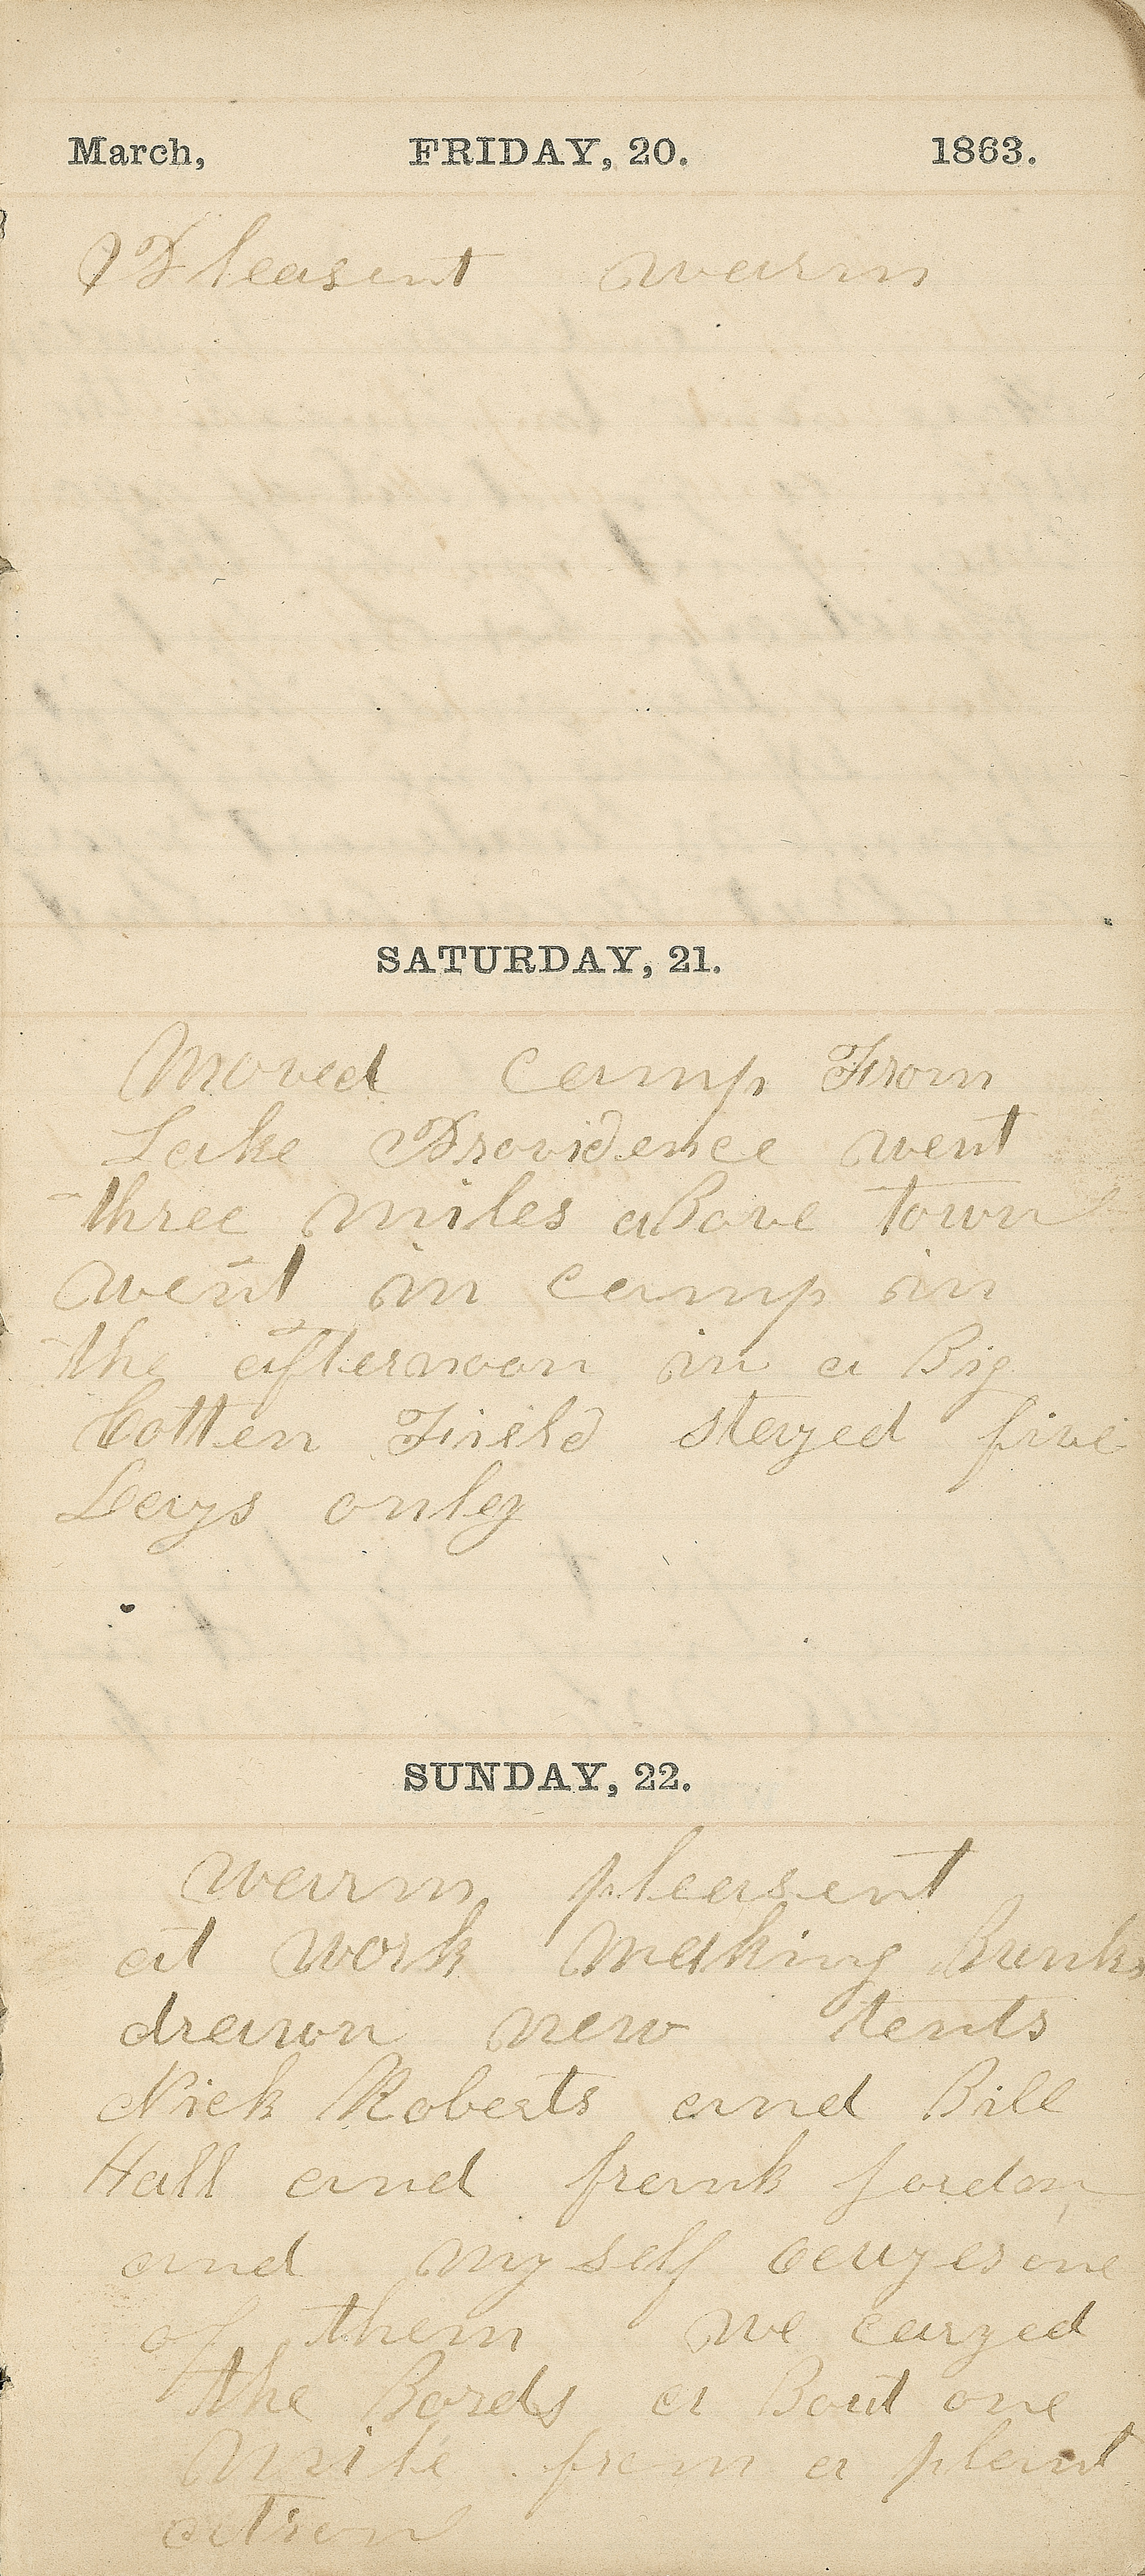 March, FRIDAY, 20. 1863.
Pleasent warm
SATURDAY, 21.
Moved camp From
Lake Providence went
three miles aBove town
went in camp in
the afternoon in a Big
Cotten Field stayed five
Days only
SUNDAY, 22.
warm pleasent
at work making Bunks
drawn new tents
Nick Roberts and Bill
Hall and frank Jordon
and my self
of them we caryed
the Bords a Bout one
Mile from a plant
ation